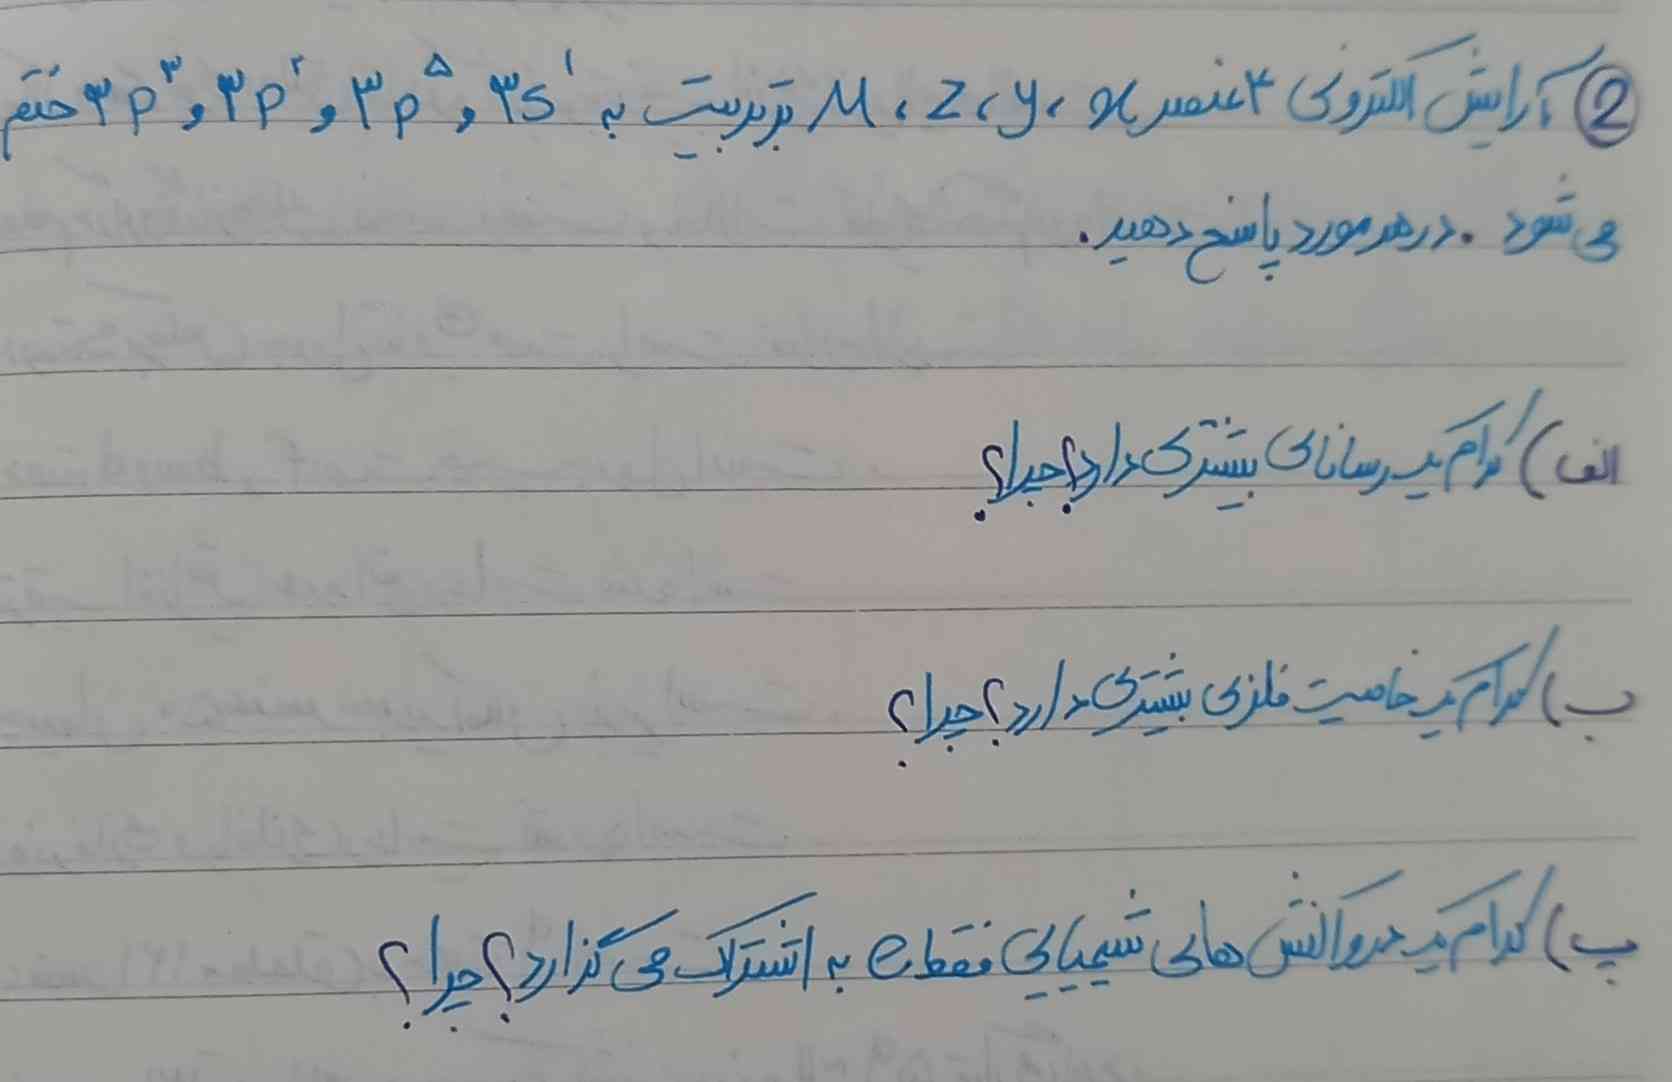 2) آرایش الکترونی ۴ عنصر x، y، z، M بترتیب به ۳s¹ و ۳p⁵ و ۳p² و ۳p³ ختم
می شود. در هر مورد پاسخ دهید.
الف) کدام یک رسانای بیشتری دارد؟ چرا؟
ب) کدام یک خاصیت فلزی بیشتری دارد؟ چرا؟
پ) کدام یک در واکنش هایی شیمیایی فقط e به اشتراک می گذارد؟ چرا؟